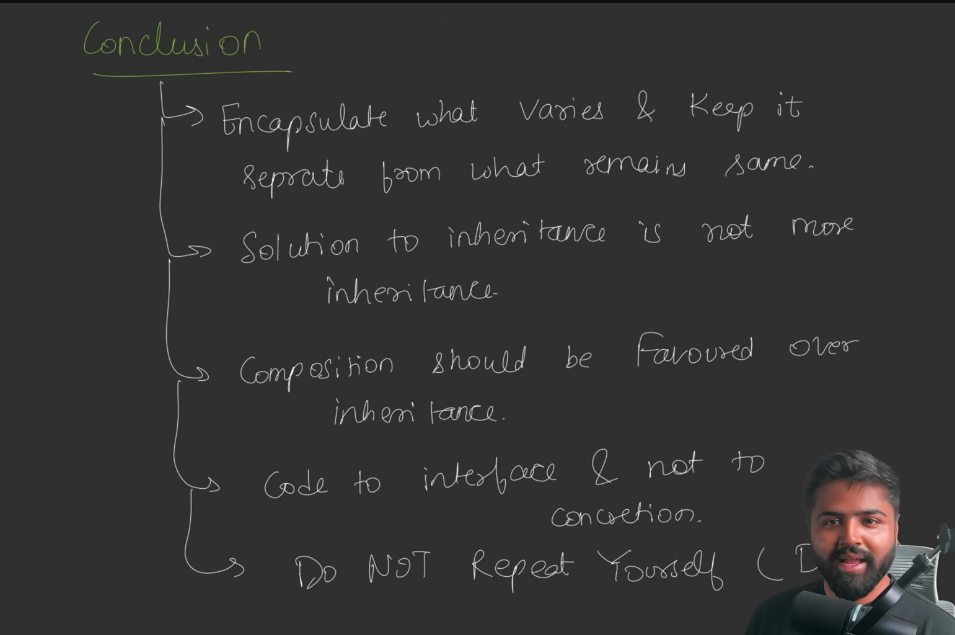 Conclusion
Encapsulate what varies & Keep it
seprate from what remains same.
Solution to inheritance is not more
inheritance.
Composition should be Favoured over
inheritance.
Code to interface & not to
concretion.
Do NOT Repeat Yourself (D